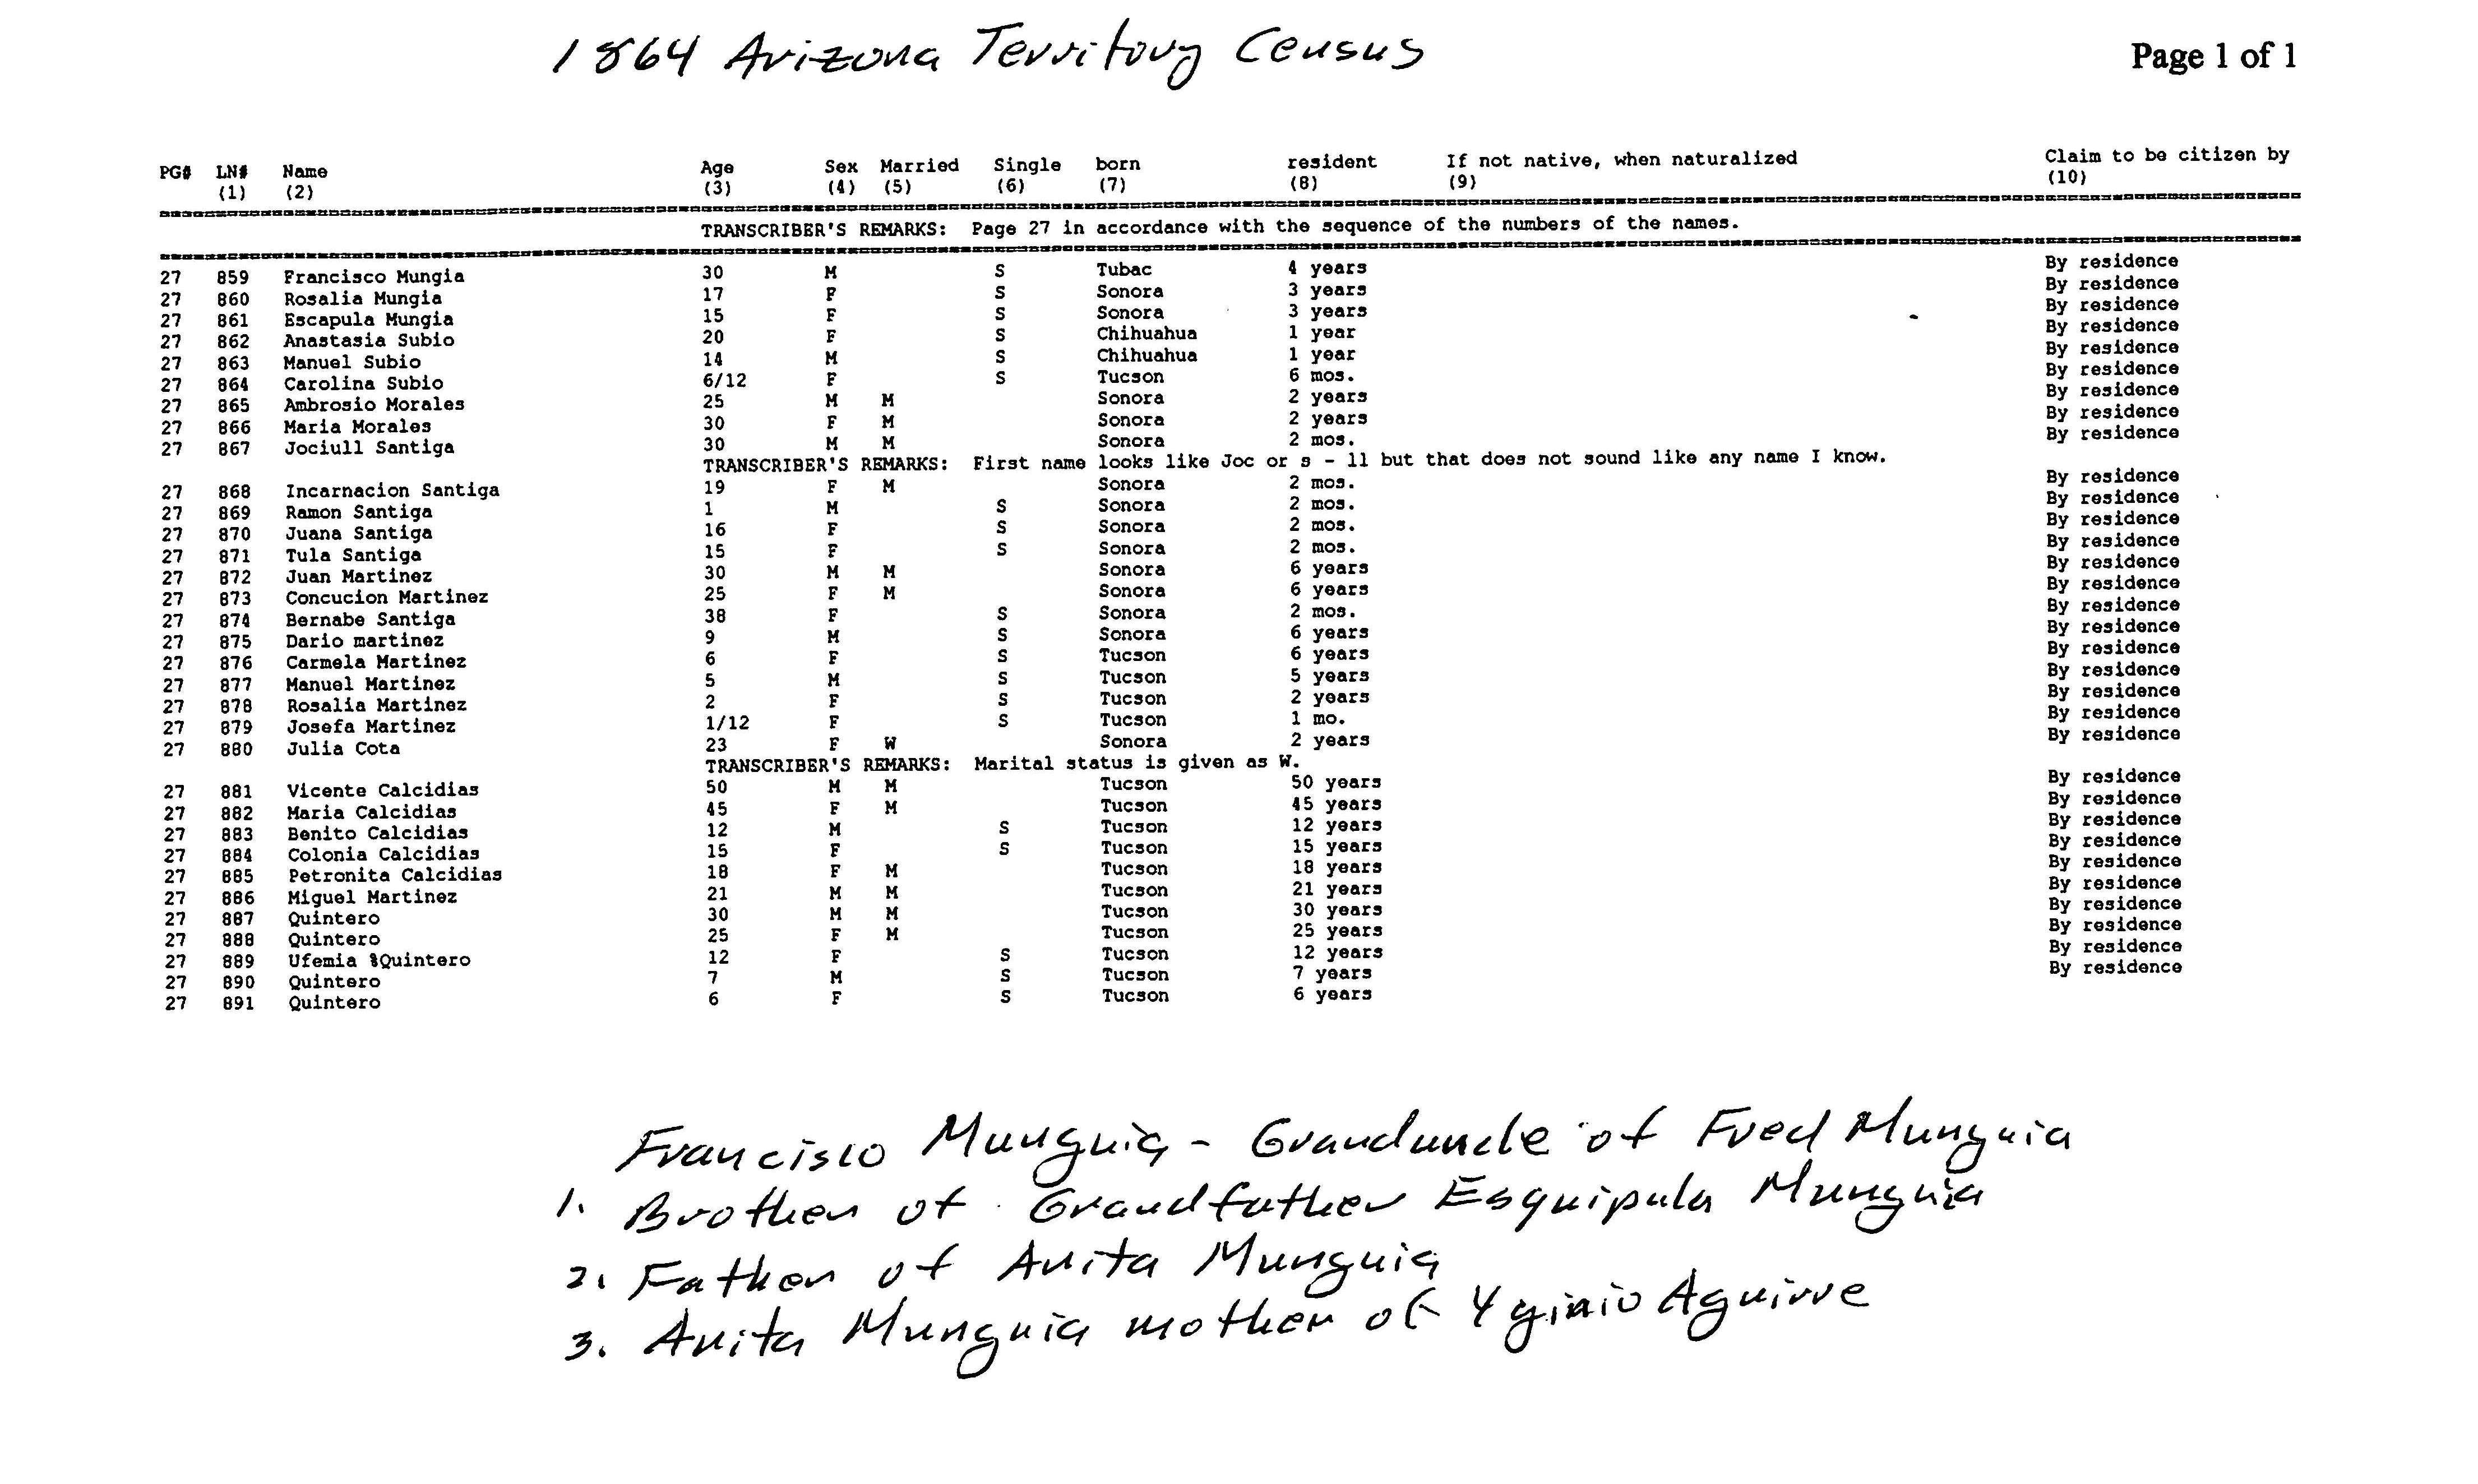 1864 Arizona Territory Census
Page 1 of 1
PG# LN# Name Age Sex Married Single born resident If not native, when naturalized Claim to be citizen by
(1) (2) (3) (4) (5) (6) (7) (8) (9) (10)
TRANSCRIBER'S REMARKS: Page 27 in accordance with the sequence of the numbers of the names.
27 859 Francisco Mungia 30 M S Tubac 4 years By residence
27 860 Rosalia Mungia 17 F S Sonora 3 years By residence
27 861 Escapula Mungia 15 F S Sonora 3 years By residence
27 862 Anastasia Subio 20 F S Chihuahua 1 year By residence
27 863 Manuel Subio 14 M S Chihuahua 1 year By residence
27 864 Carolina Subio 6/12 F S Tucson 6 mos. By residence
27 865 Ambrosio Morales 25 M M Sonora 2 years By residence
27 866 Maria Morales 30 F M Sonora 2 years By residence
27 867 Jociull Santiga 30 M M Sonora 2 mos. By residence
TRANSCRIBER'S REMARKS: First name looks like Joc or s - ll but that does not sound like any name I know.
27 868 Incarnacion Santiga 19 F M Sonora 2 mos. By residence
27 869 Ramon Santiga 1 M S Sonora 2 mos. By residence
27 870 Juana Santiga 16 F S Sonora 2 mos. By residence
27 871 Tula Santiga 15 F S Sonora 2 mos. By residence
27 872 Juan Martinez 30 M M Sonora 6 years By residence
27 873 Concucion Martinez 25 F M Sonora 6 years By residence
27 874 Bernabe Santiga 38 F S Sonora 2 mos. By residence
27 875 Dario martinez 9 M S Sonora 6 years By residence
27 876 Carmela Martinez 6 F S Tucson 6 years By residence
27 877 Manuel Martinez 5 M S Tucson 5 years By residence
27 878 Rosalia Martinez 2 F S Tucson 2 years By residence
27 879 Josefa Martinez 1/12 F S Tucson 1 mo. By residence
27 880 Julia Cota 23 F W Sonora 2 years By residence
TRANSCRIBER'S REMARKS: Marital status is given as W.
27 881 Vicente Calcidias 50 M M Tucson 50 years By residence
27 882 Maria Calcidias 45 F M Tucson 45 years By residence
27 883 Benito Calcidias 12 M S Tucson 12 years By residence
27 884 Colonia Calcidias 15 F S Tucson 15 years By residence
27 885 Petronita Calcidias 18 F M Tucson 18 years By residence
27 886 Miguel Martinez 21 M M Tucson 21 years By residence
27 887 Quintero 30 M M Tucson 30 years By residence
27 888 Quintero 25 F M Tucson 25 years By residence
27 889 Ufemia %Quintero 12 F S Tucson 12 years By residence
27 890 Quintero 7 M S Tucson 7 years By residence
27 891 Quintero 6 F S Tucson 6 years
Francisco Munguia - Granduncle of Fred Munguia
1. Brother of Grandfather Esquipula Munguia
2. Father of Anita Munguia
3. Anita Munguia mother of Yginio Aguirre